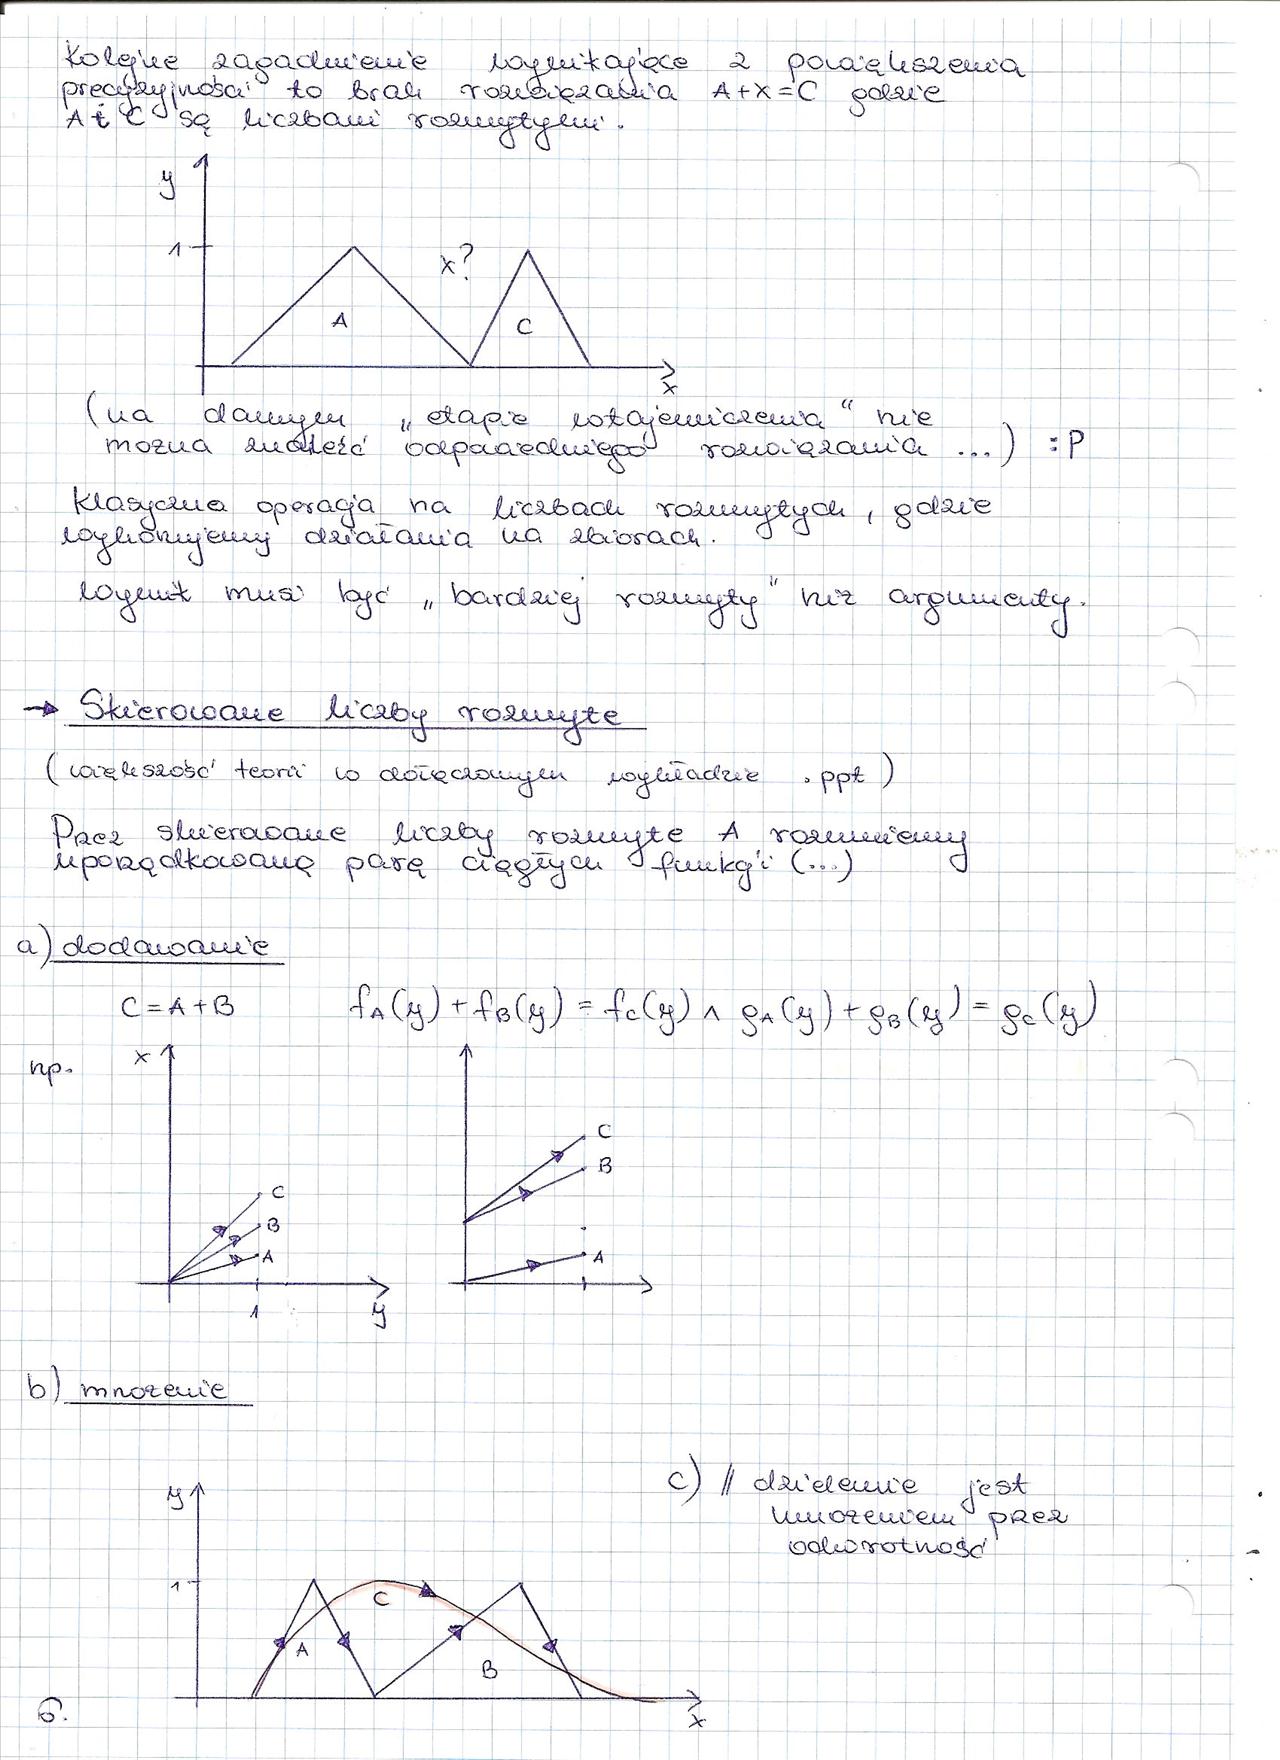 Kolejne zagadnienie wynikające z powiększenia
precyzyjności to brak rozwiązania A+X=C gdzie
A i C są liczbami rozmytymi.
y
1
x?
A
C
x
(na danym „etapie wtajemniczenia" nie
można znaleźć odpowiedniego rozwiązania ...) :P
Klasyczna operacja na liczbach rozmytych, gdzie
wykonujemy działania na zbiorach.
Wynik musi być „bardziej rozmyty" niż argumenty.
→ Skierowane liczby rozmyte
(większość teorii w dołączonym wykładzie .ppt)
Przez skierowane liczby rozmyte A rozumiemy
uporządkowaną parę ciągłych funkcji (...)
a) dodawanie
C = A + B
fA(y) + fB(y) = fC(y) ∧ gA(y) + gB(y) = gC(y)
np.
x
C
B
A
1
y
C
B
A
b) mnożenie
c) // dzielenie jest
mnożeniem przez
odwrotność
y
1
A
C
B
x
6.